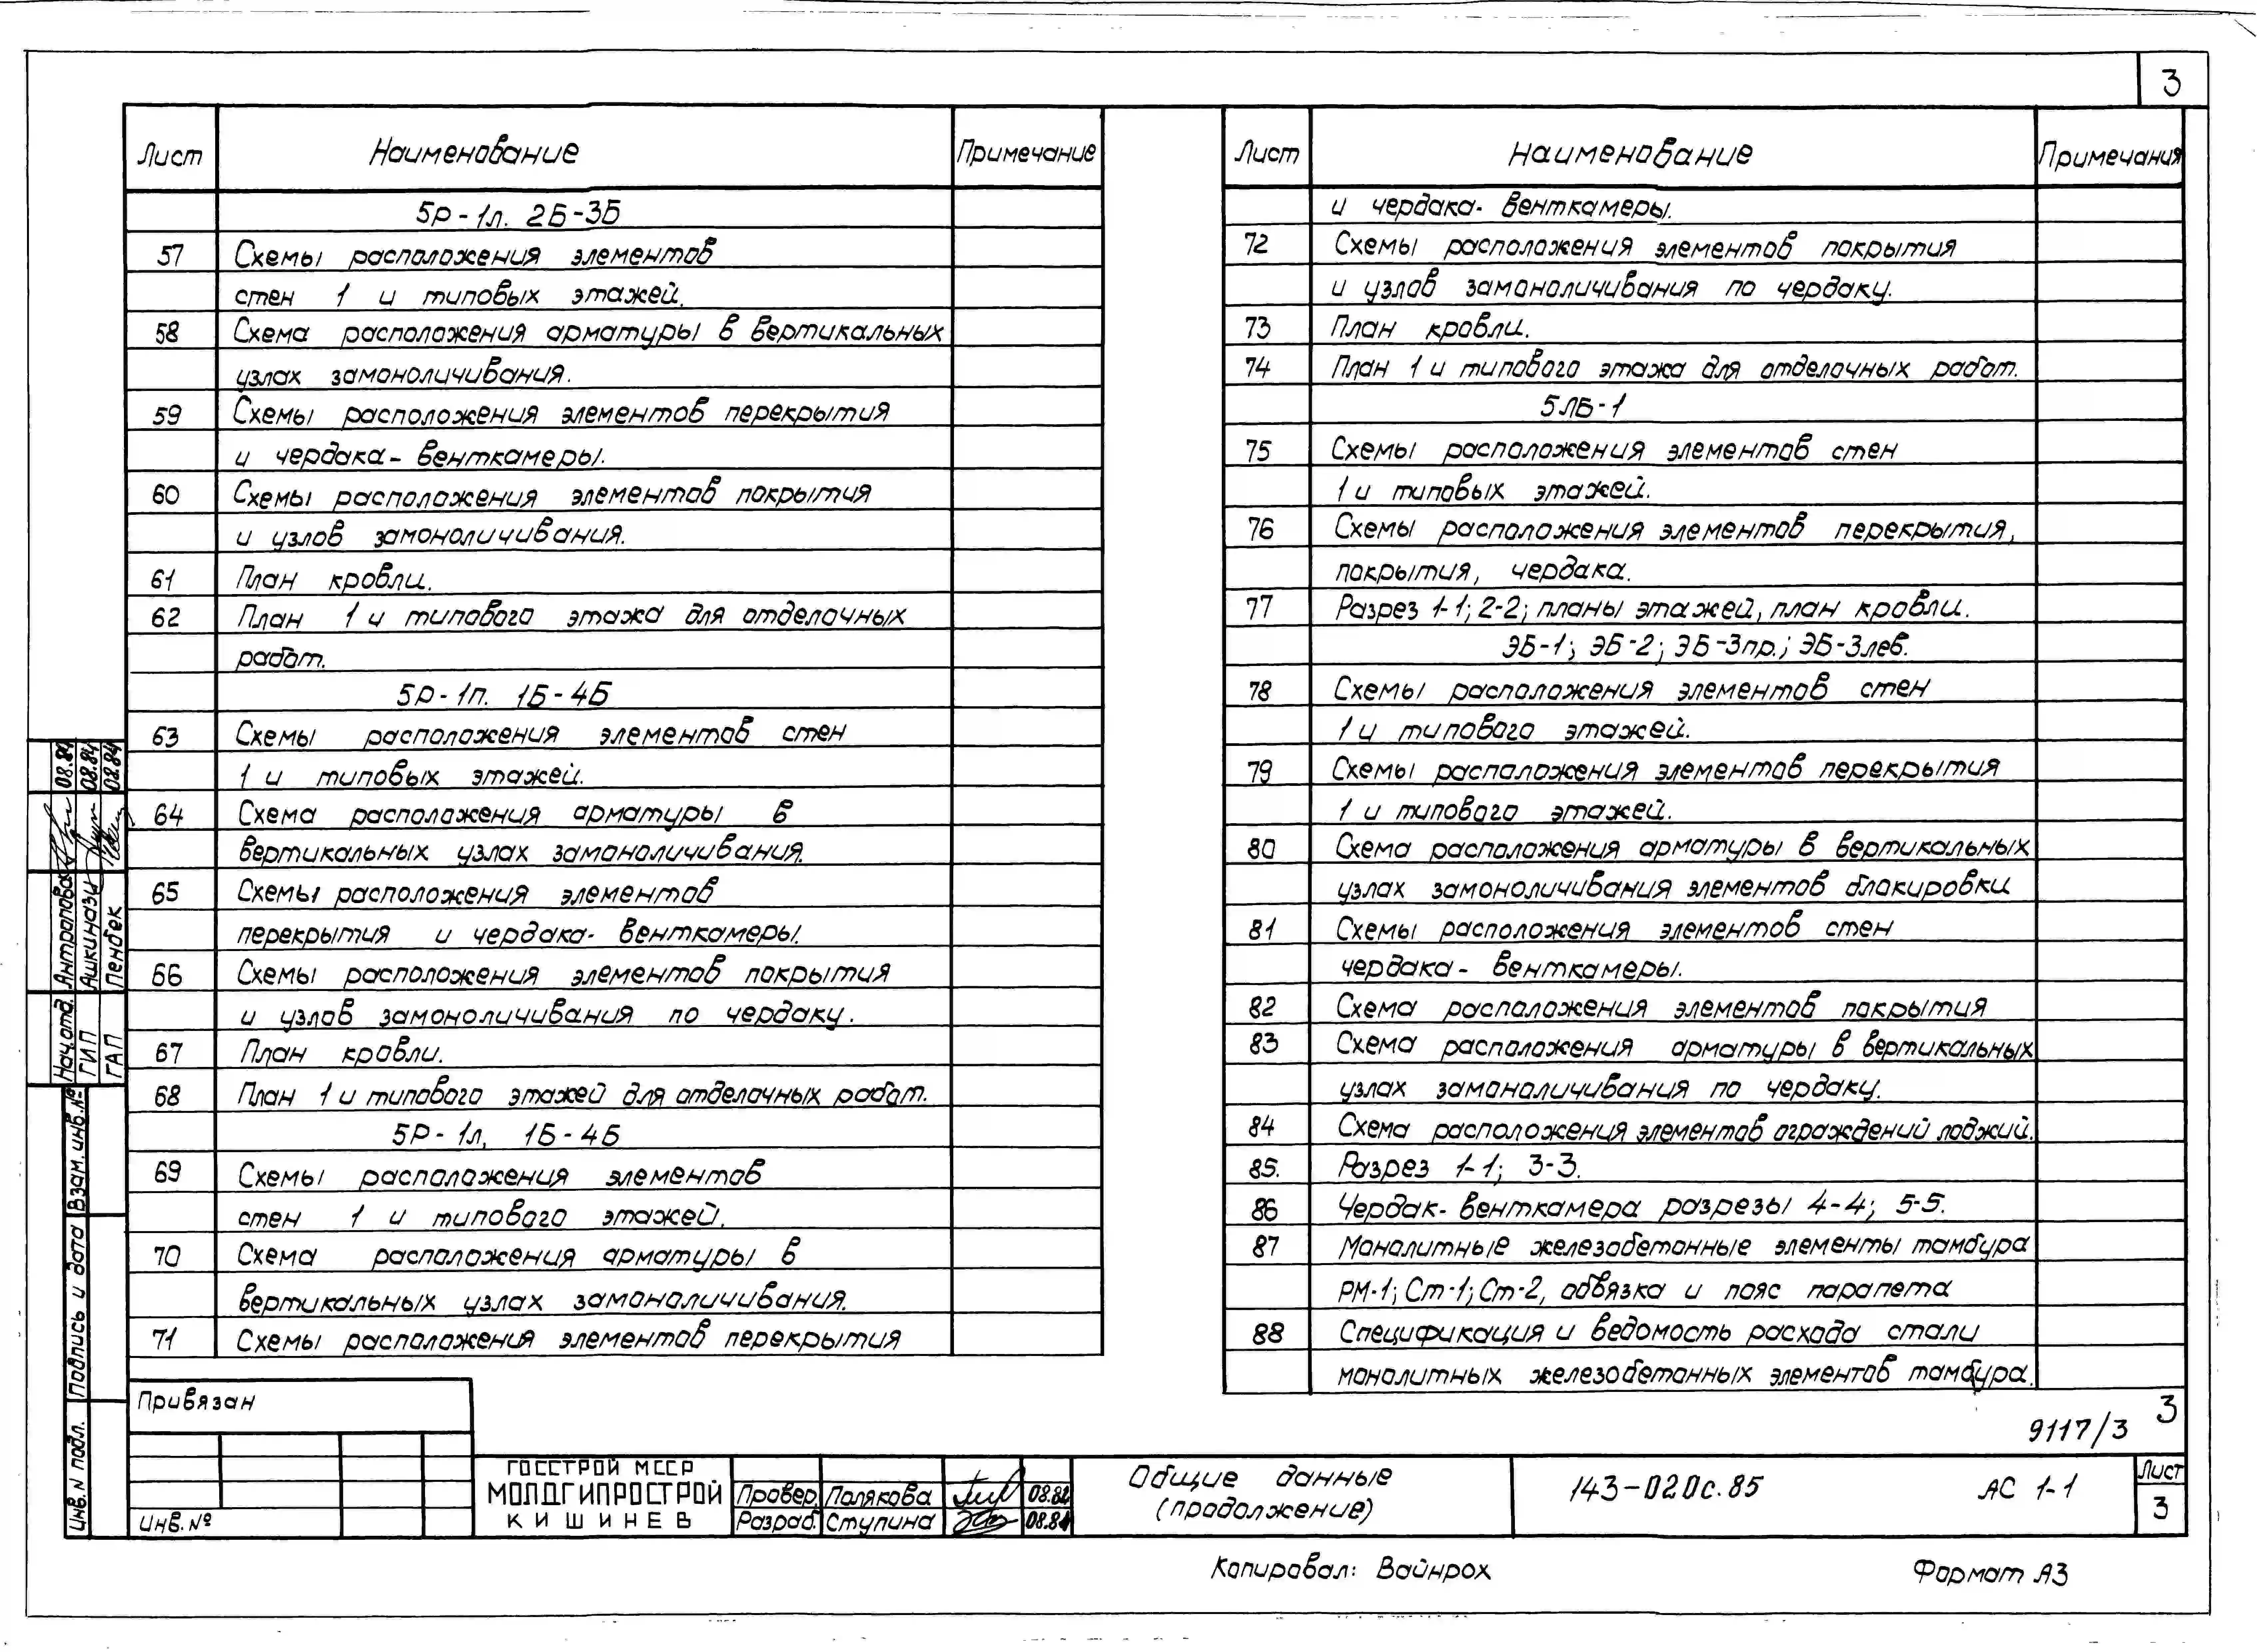 3
Лист Наименование Примечание
5Р-1л. 2Б-3Б
57 Схемы расположения элементов
стен 1 и типовых этажей.
58 Схема расположения арматуры в вертикальных
узлах замоноличивания.
59 Схемы расположения элементов перекрытия
и чердака- венткамеры.
60 Схемы расположения элементов покрытия
и узлов замоноличивания.
61 План кровли.
62 План 1 и типового этажа для отделочных
работ.
5Р-1п. 1Б-4Б
63 Схемы расположения элементов стен
1 и типовых этажей.
64 Схема расположения арматуры в
вертикальных узлах замоноличивания.
65 Схемы расположения элементов
перекрытия и чердака- венткамеры.
66 Схемы расположения элементов покрытия
и узлов замоноличивания по чердаку.
67 План кровли.
68 План 1 и типового этажей для отделочных работ.
5Р-1л, 1Б-4Б
69 Схемы расположения элементов
стен 1 и типового этажей.
70 Схема расположения арматуры в
вертикальных узлах замоноличивания.
71 Схемы расположения элементов перекрытия
Лист Наименование Примечания
и чердака- венткамеры.
72 Схемы расположения элементов покрытия
и узлов замоноличивания по чердаку.
73 План кровли.
74 План 1 и типового этажа для отделочных работ.
5ЛБ-1
75 Схемы расположения элементов стен
1 и типовых этажей.
76 Схемы расположения элементов перекрытия,
покрытия, чердака.
77 Разрез 1-1; 2-2; планы этажей, план кровли.
ЭБ-1; ЭБ-2; ЭБ-3пр.; ЭБ-3лев.
78 Схемы расположения элементов стен
1 и типового этажей.
79 Схемы расположения элементов перекрытия
1 и типового этажей.
80 Схема расположения арматуры в вертикальных
узлах замоноличивания элементов блокировки
81 Схемы расположения элементов стен
чердака- венткамеры.
82 Схема расположения элементов покрытия
83 Схема расположения арматуры в вертикальных
узлах замоноличивания по чердаку.
84 Схема расположения элементов ограждений лоджий.
85. Разрез 1-1; 3-3.
86 Чердак- венткамера разрезы 4-4; 5-5.
87 Монолитные железобетонные элементы тамбура
РМ-1; Ст-1; Ст-2, обвязка и пояс парапета
88 Спецификация и ведомость расхода стали
монолитных железобетонных элементов тамбура.
Нач.отд. Антропова 08.84
ГИП Ашкиназы 08.84
ГАП Пенбек 08.84
Взам. инв.№
Подпись и дата
Инв. N подл.
Привязан
Инв.№
ГОССТРОЙ МССР
МОЛДГИПРОСТРОЙ
КИШИНЕВ
Провер. Полякова 08.84
Разраб. Ступина 08.84
Общие данные
(продолжение)
9117/3 3
143-020с.85 АС 1-1
Лист
3
Копировал: Вайнрох Формат А3